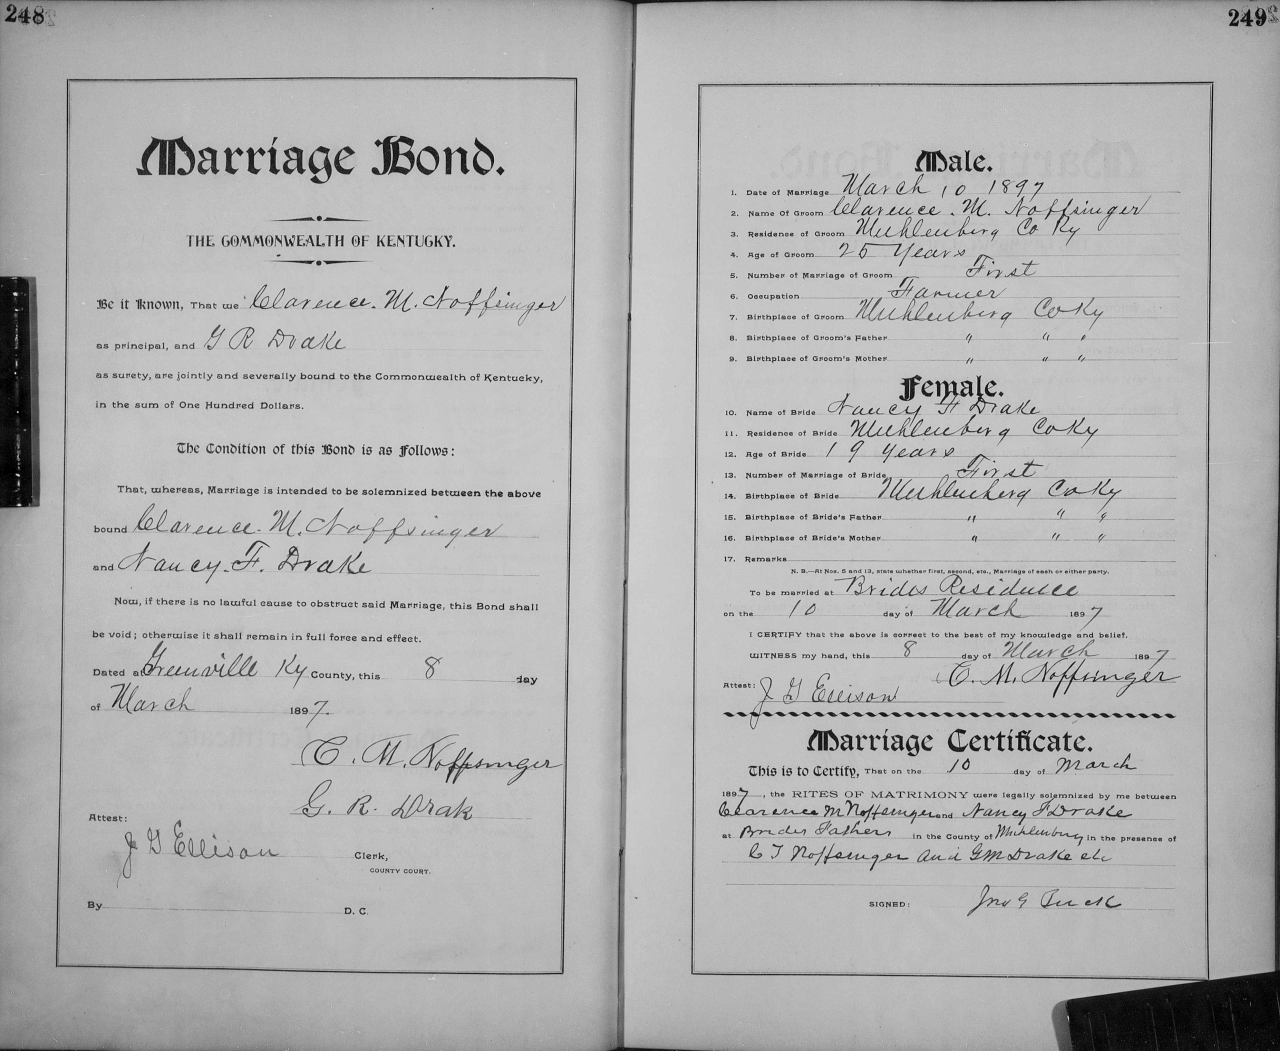 248
Marriage Bond.
THE COMMONWEALTH OF KENTUCKY.
Be it Known, That we Clarence. M. Noffsinger
as principal, and G R Drake
as surety, are jointly and severally bound to the Commonwealth of Kentucky,
in the sum of One Hundred Dollars.
The Condition of this Bond is as Follows:
That, whereas, Marriage is intended to be solemnized between the above
bound Clarence. M. Noffsinger
and Nancy. F. Drake
Now, if there is no lawful cause to obstruct said Marriage, this Bond shall
be void; otherwise it shall remain in full force and effect.
Dated at Greenville Ky County, this 8 day
of March 1897.
C. M. Noffsinger
G. R. Drak
Attest:
J G Ellison Clerk,
COUNTY COURT.
By D. C.
249
Male.
1. Date of Marriage March 10 1897
2. Name Of Groom Clarence. M. Noffsinger
3. Residence of Groom Muhlenberg Co Ky
4. Age of Groom 25 Years
5. Number of Marriage of Groom First
6. Occupation Farmer
7. Birthplace of Groom Muhlenberg Co Ky
8. Birthplace of Groom's Father " " "
9. Birthplace of Groom's Mother " " "
Female.
10. Name of Bride Nancy F Drake
11. Residence of Bride Muhlenberg Co Ky
12. Age of Bride 19 Years
13. Number of Marriage of Bride First
14. Birthplace of Bride Muhlenberg Co Ky
15. Birthplace of Bride's Father " " "
16. Birthplace of Bride's Mother " " "
17. Remarks
N. B.—At Nos. 5 and 13, state whether first, second, etc., Marriage of each or either party.
To be married at Brides Residence
on the 10 day of March 1897
I CERTIFY that the above is correct to the best of my knowledge and belief.
WITNESS my hand, this 8 day of March 1897
C. M. Noffsinger
Attest: J G Ellison
Marriage Certificate.
This is to Certify, That on the 10 day of March
1897, the RITES OF MATRIMONY were legally solemnized by me between
Clarence M Noffsinger and Nancy F Drake
at Brides Fathers in the County of Muhlenburg in the presence of
C T Noffsinger and G M Drake etc
SIGNED: Jno G Buck